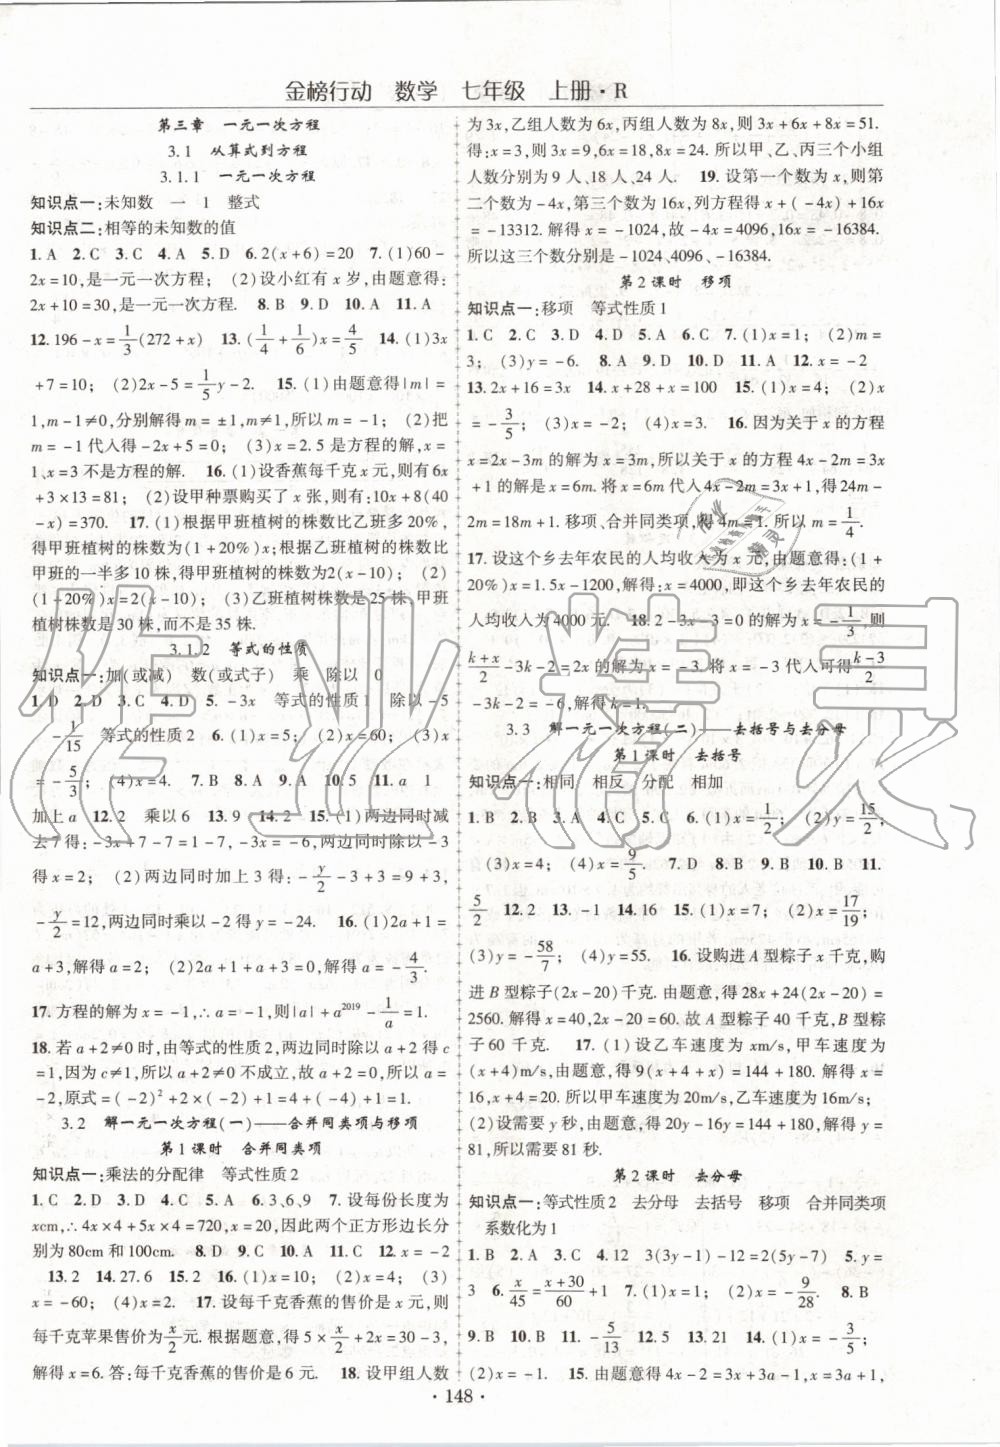 金榜行动 数学 七年级 上册·R
第三章 一元一次方程
3.1 从算式到方程
3.1.1 一元一次方程
知识点一:未知数 一 1 整式
知识点二:相等的未知数的值
1. A 2. C 3. C 4. C 5. D 6. 2(x+6)=20 7. (1)60-
2x=10,是一元一次方程; (2)设小红有 x 岁,由题意得:
2x+10=30,是一元一次方程. 8. B 9. D 10. A 11. A
12. 196-x=1/3(272+x) 13. (1/4+1/6)x=4/5 14. (1)3x
+7=10; (2)2x-5=1/5y-2. 15. (1)由题意得|m|=
1,m-1≠0,分别解得 m=±1,m≠1,所以 m=-1; (2)把
m=-1代入得-2x+5=0; (3)x=2.5 是方程的解,x=
1、x=3 不是方程的解. 16. (1)设香蕉每千克 x 元,则有6x
+3×13=81; (2)设甲种票购买了 x 张,则有:10x+8(40
-x)=370. 17. (1)根据甲班植树的株数比乙班多20%,
得甲班植树的株数为(1+20%)x;根据乙班植树的株数比
甲班的一半多10株,得甲班植树的株数为2(x-10); (2)
(1+20%)x=2(x-10); (3)乙班植树株数是25株,甲班
植树株数是30株,而不是35株.
3.1.2 等式的性质
知识点一:加(或减) 数(或式子) 乘 除以 0
1. D 2. D 3. C 4. C 5. -3x 等式的性质1 除以-5
-1/15 等式的性质2 6. (1)x=5; (2)x=60; (3)x
=-5/3; (4)x=4. 7. B 8. B 9. A 10. 5 11. a 1
加上a 12. 2 乘以6 13. 9 14. 2 15. (1)两边同时减
去7得:-3x+7-7=1-7,-3x=-6,两边同时除以-3
得x=2; (2)两边同时加上3得:-y/2-3+3=9+3,
-y/2=12,两边同时乘以-2得y=-24. 16. (1)2a+1=
a+3,解得a=2; (2)2a+1+a+3=0,解得a=-4/3.
17. 方程的解为x=-1,∴a=-1,则|a|+a²⁰¹⁹-1/a=1.
18. 若a+2≠0时,由等式的性质2,两边同除以a+2得c
=1,因为c≠1,所以a+2≠0不成立,故a+2=0,a=
-2,原式=(-2)²+2×(-2)+1=4+(-4)+1=1.
3.2 解一元一次方程(一)——合并同类项与移项
第1课时 合并同类项
知识点一:乘法的分配律 等式性质2
1. C 2. D 3. D 4. C 5. A 6. 3、6、9 7. 设每份长度为
xcm,则:4x×4+5x×4=720,x=20,因此两个正方形边长分
别为80cm和100cm. 8. D 9. C 10. C 11. C 12. x=-2
13. 2 14. 27.6 15. 2 16. (1)x=10; (2)x=4; (3)
x=-60; (4)x=2. 17. 设每千克香蕉的售价是 x 元,则
每千克苹果售价为x/2元.根据题意,得 5×x/2+2x=30-3,
解得x=6.答:每千克香蕉的售价是6元. 18. 设甲组人数
为3x,乙组人数为6x,丙组人数为8x,则3x+6x+8x=51.
得:x=3,则3x=9,6x=18,8x=24. 所以甲、乙、丙三个小组
人数分别为9人、18人、24人. 19. 设第一个数为x,则第
二个数为-4x,第三个数为16x,列方程得 x+(-4x)+16x
=-13312. 解得x=-1024,故-4x=4096,16x=-16384.
所以这三个数分别是-1024、4096、-16384.
第2课时 移项
知识点一:移项 等式性质1
1. C 2. C 3. D 4. D 5. A 6. C 7. (1)x=1; (2)m=
3; (3)y=-6. 8. A 9. D 10. D 11. A 12. x=-2
13. 2x+16=3x 14. x+28+x=100 15. (1)x=4; (2)x
=-3/5; (3)x=-2; (4)x=3. 16. 因为关于 x 的方程
x=2x-3m 的解为x=3m,所以关于 x 的方程4x-2m=3x
+1的解是x=6m. 将x=6m代入4x-2m=3x+1,得24m-
2m=18m+1. 移项、合并同类项,得4m=1. 所以m=1/4.
17. 设这个乡去年农民的人均收入为x元,由题意得:(1+
20%)x=1.5x-1200,解得:x=4000,即这个乡去年农民的
人均收入为4000元. 18. 2-3x-3=0的解为x=-1/3,则
(k+x)/2-3k-2=2x的解为x=-3. 将x=-3代入可得(k-3)/2
-3k-2=-6,解得k=1.
3.3 解一元一次方程(二)——去括号与去分母
第1课时 去括号
知识点一:相同 相反 分配 相加
1. B 2. B 3. D 4. B 5. C 6. (1)x=1/2; (2)y=15/2;
(3)x=4; (4)x=9/5. 7. D 8. B 9. B 10. B 11.
5/2 12. 2 13. -1 14. 16 15. (1)x=7; (2)x=17/19;
(3)y=-58/7; (4)y=55. 16. 设购进A型粽子x千克,购
进B型粽子(2x-20)千克. 由题意,得28x+24(2x-20)=
2560. 解得x=40,2x-20=60. 故A型粽子40千克,B型粽
子60千克. 17. (1)设乙车速度为xm/s,甲车速度为
(x+4)m/s,由题意得,9x+9(x+4)=144+180. 解得x=
16,x+4=20. 所以甲车速度为20m/s,乙车速度为16m/s;
(2)设需要y秒,由题意,得20y-16y=144+180,解得y=
81,所以需要81秒.
第2课时 去分母
知识点一:等式性质2 去分母 去括号 移项 合并同类项
系数化为1
1. B 2. A 3. C 4. 12 3(3y-1)-12=2(5y-7) 5. y=
3 6. x/45=(x+30)/60+1 7. (1)x=1; (2)x=-9/28. 8. B
9. B 10. B 11. -5/13 12. 5 13. 21 14. (1)x=-3/5;
(2)x=1. 15. 由题意得4x-2=3x+a-1,x=3a+1,
·148·
作业精灵